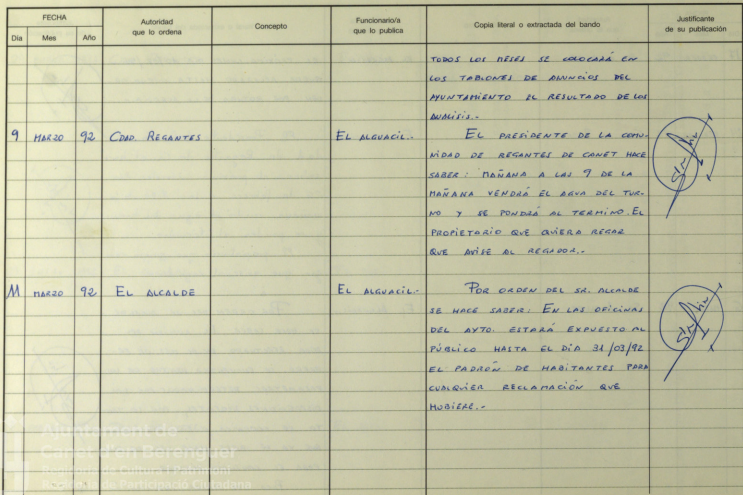 FECHA
Autoridad que lo ordena
Concepto
Funcionario/a que lo publica
Copia literal o extractada del bando
Justificante de su publicación
Día Mes Año
TODOS LOS MESES SE COLOCARÁ EN
LOS TABLONES DE ANUNCIOS DEL
AYUNTAMIENTO EL RESULTADO DE LOS
ANALISIS.-
9 MARZO 92 CDAD. REGANTES EL ALGUACIL.- EL PRESIDENTE DE LA COMU-
NIDAD DE REGANTES DE CANET HACE
SABER: MAÑANA A LAS 9 DE LA
MAÑANA VENDRÁ EL AGUA DEL TUR-
NO Y SE PONDRÁ AL TERMINO. EL
PROPIETARIO QUE QUIERA REGAR
QUE AVISE AL REGADOR.-
11 MARZO 92 EL ALCALDE EL ALGUACIL.- POR ORDEN DEL SR. ALCALDE
SE HACE SABER: EN LAS OFICINAS
DEL AYTO. ESTARÁ EXPUESTO AL
PÚBLICO HASTA EL DÍA 31/03/92
EL PADRÓN DE HABITANTES PARA
CUALQUIER RECLAMACIÓN QUE
HUBIERE.-
Ajuntament de
Canet d'en Berenguer
Regidoria de Cultura i Patrimoni
Regidoria de Participació Ciutadana